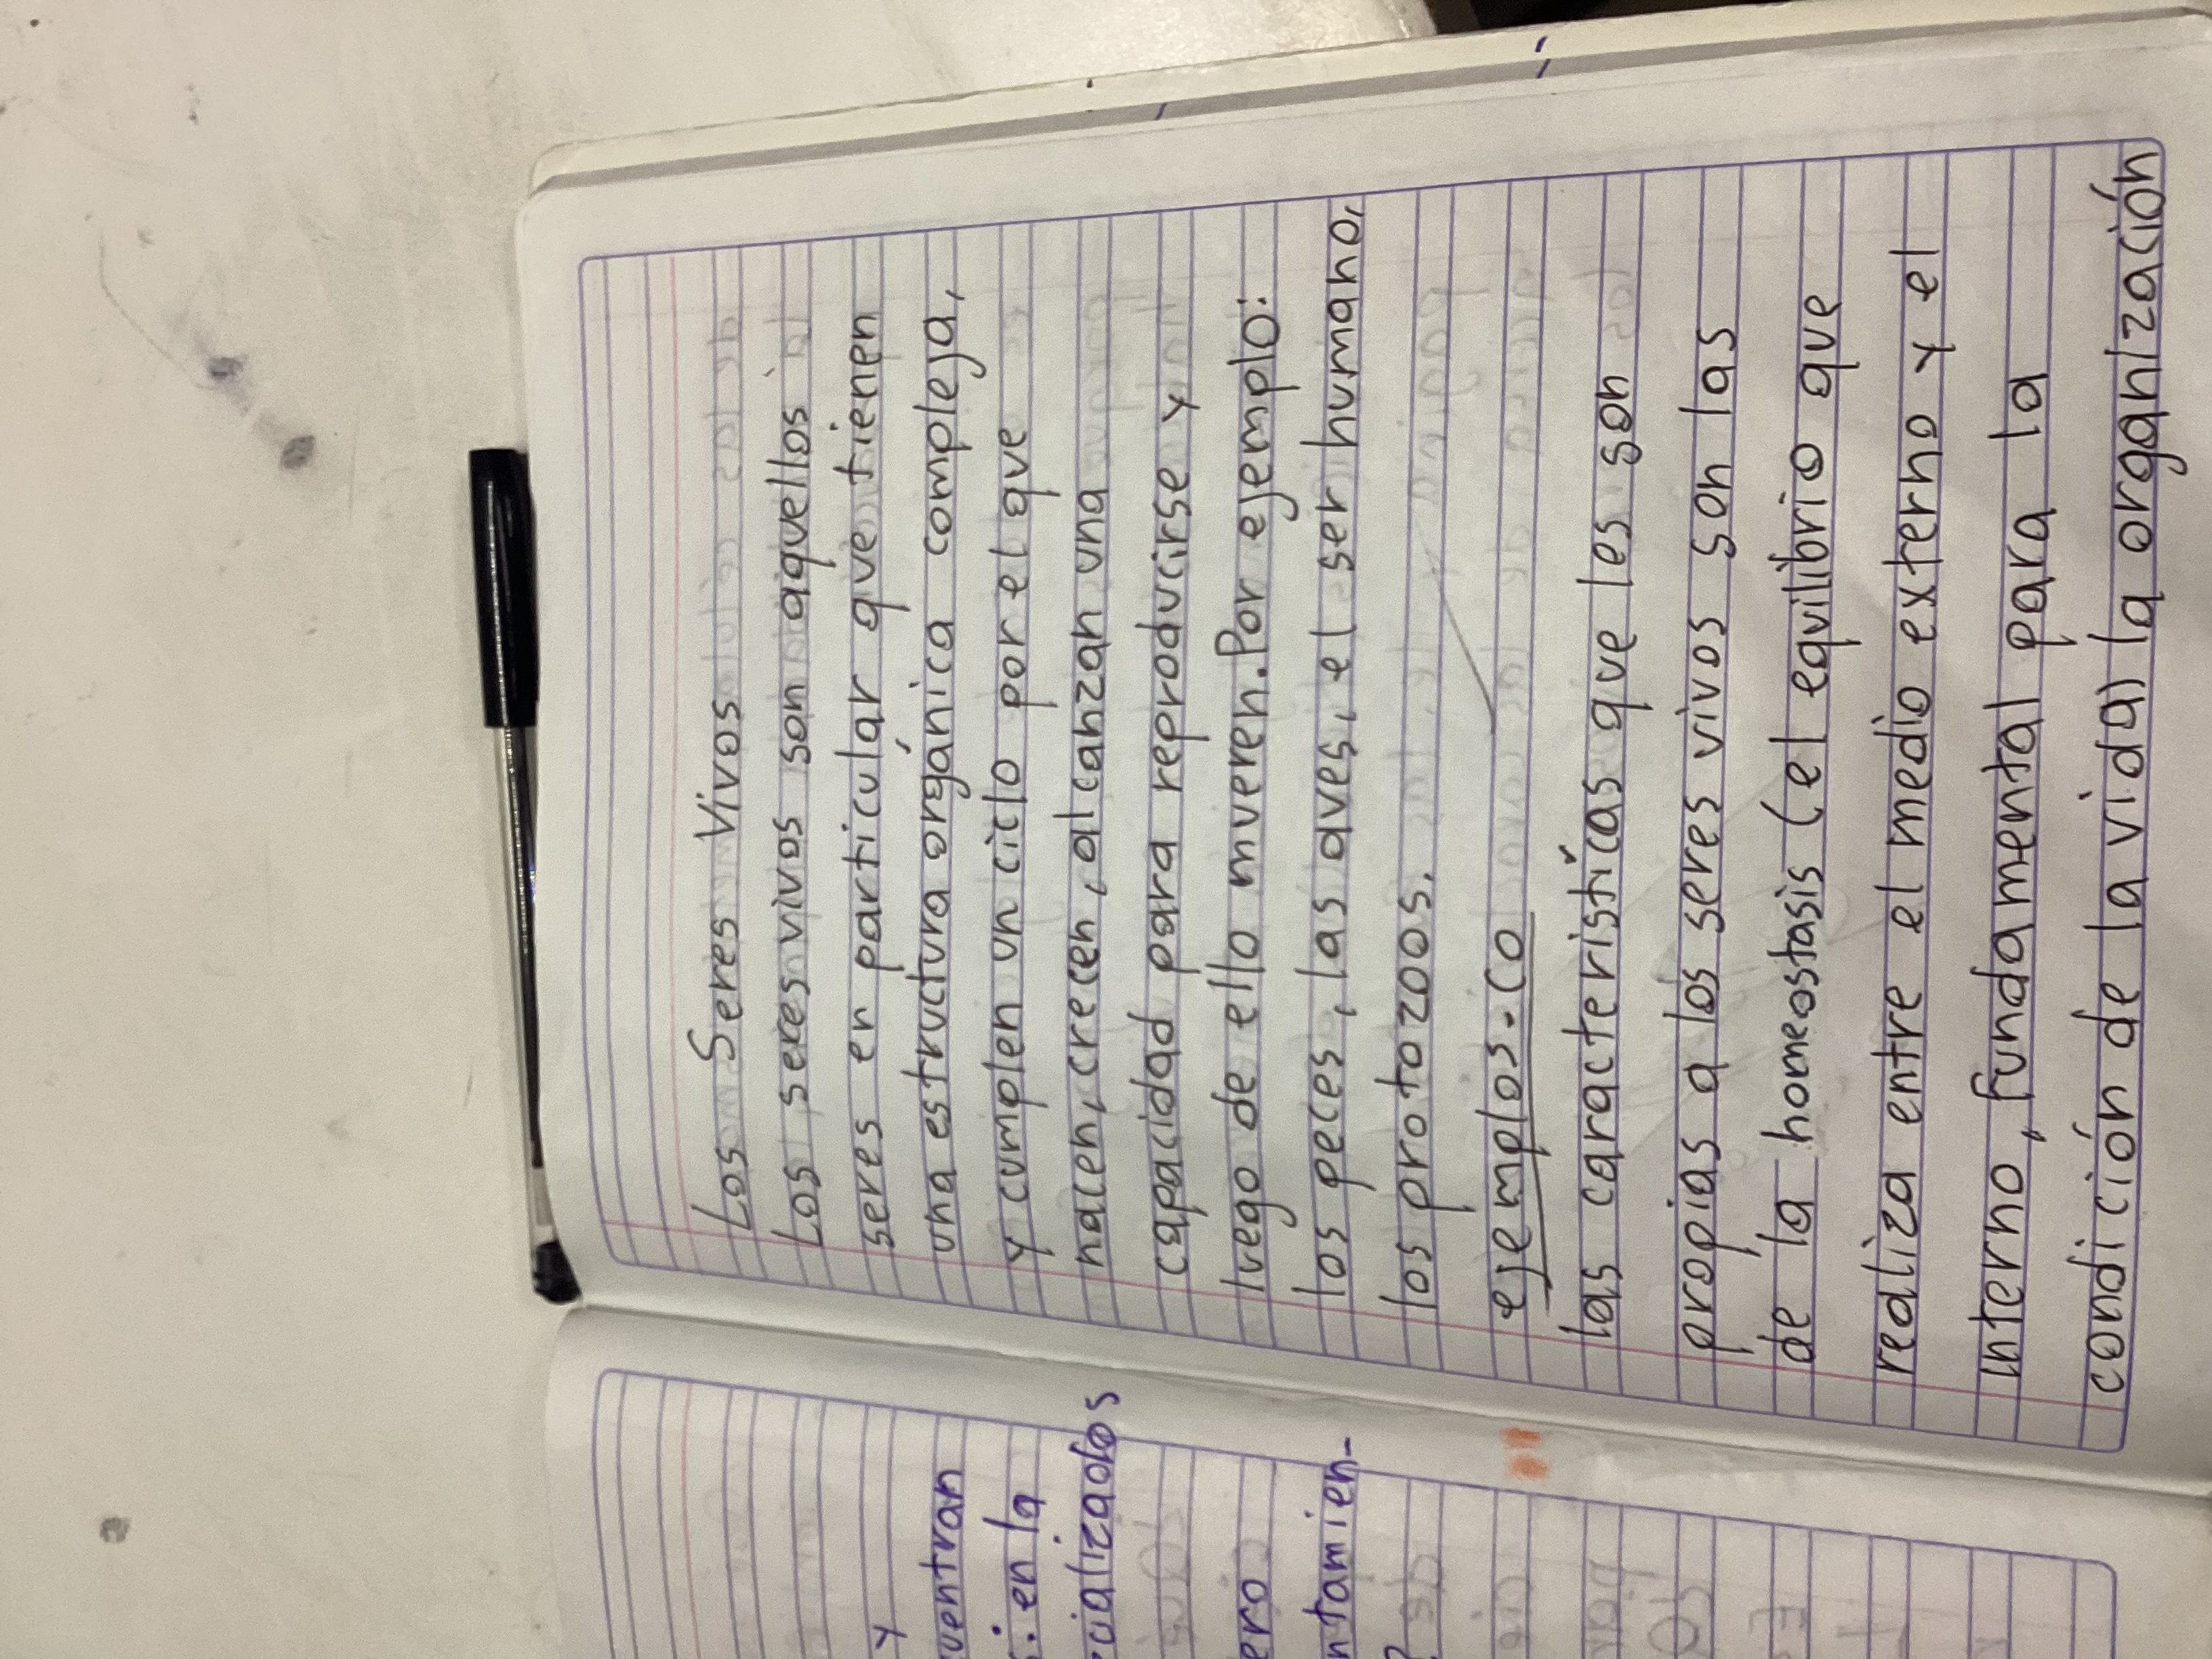 Los Seres Vivos
Los seres vivos son aquellos
seres en particular que tienen
una estructura orgánica compleja,
y cumplen un ciclo por el que
nacen, crecen, alcanzan una
capacidad para reproducirse y
luego de ello mueren. Por ejemplo:
los peces, las aves, el ser humano,
los protozoos.
ejemplos. Co
las características que les son
propias a los seres vivos son las
de la homeostasis (el equilibrio que
realiza entre el medio externo y el
interno, fundamental para la
condición de la vida) la organización
y
uentran
s. en la
cializados
ero
ntamien-